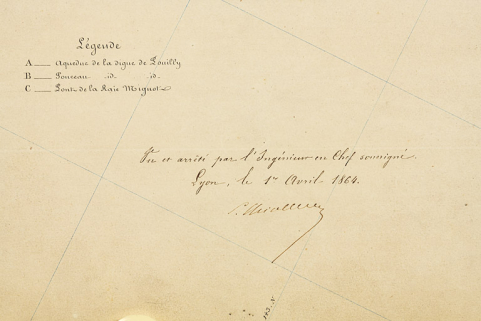 Légende
A — Aqueduc de la digue de Pouilly
B — Ponceau id. id.
C — Pont de la Raie Mignot
Vu et arrêté par l'Ingénieur en Chef soussigné.
Lyon, le 1er Avril 1864.